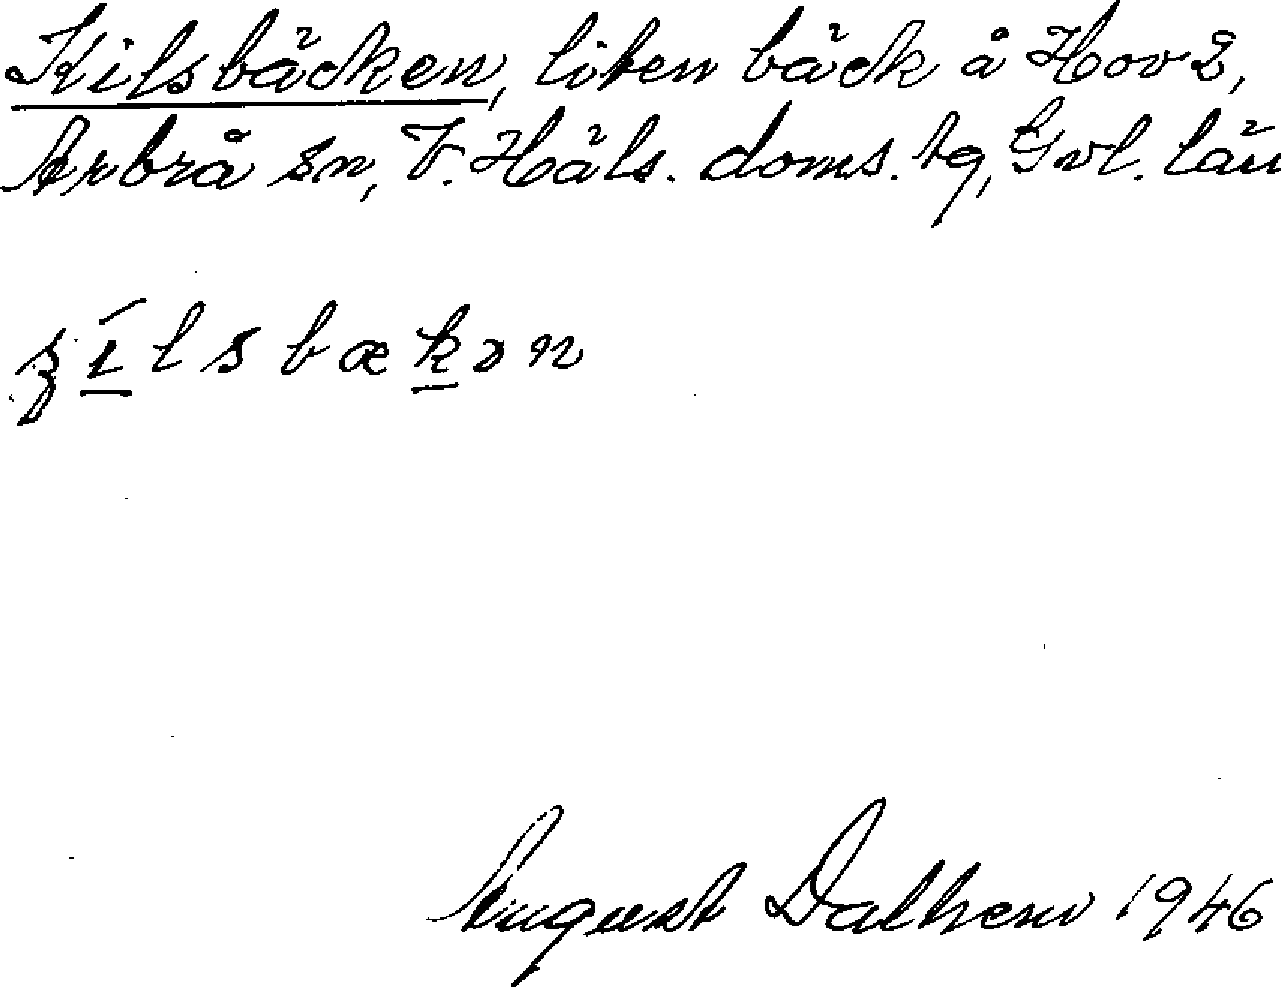 Kilsbäcken, liten bäck å Hov 2,
Arbrå sn, V. Häls. doms. tg, Gvl. län
ʂ í l s b æ k ə n
August Dalhem 1946